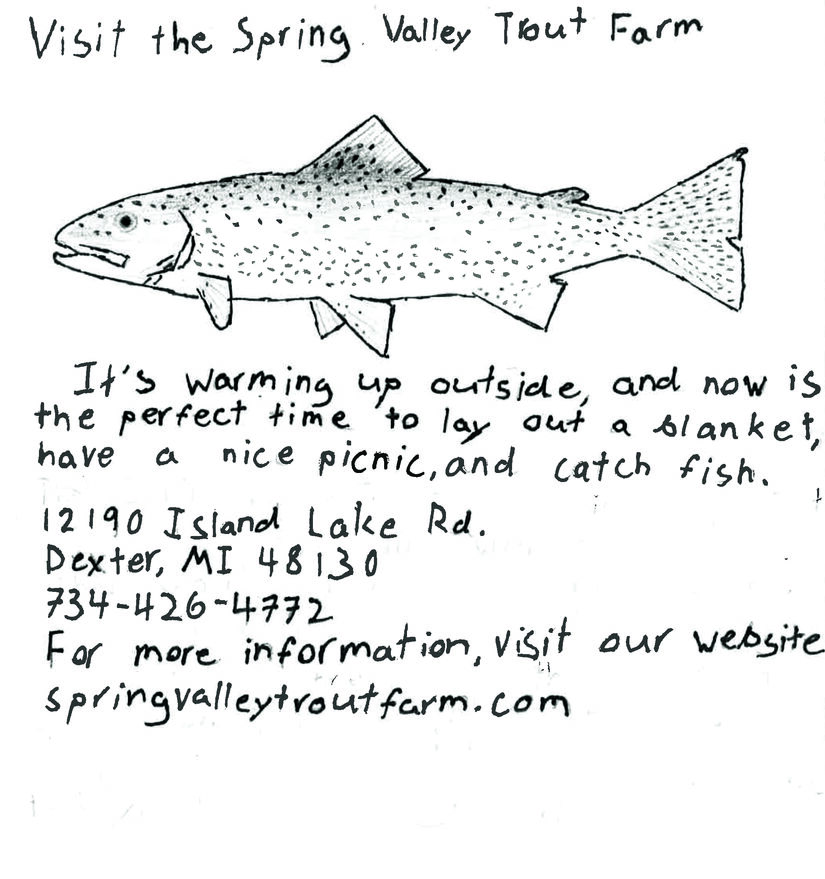 Visit the Spring Valley Trout Farm
It's warming up outside, and now is
the perfect time to lay out a blanket,
have a nice picnic, and catch fish.
12190 Island Lake Rd.
Dexter, MI 48130
734-426-4772
For more information, visit our website
springvalleytroutfarm.com